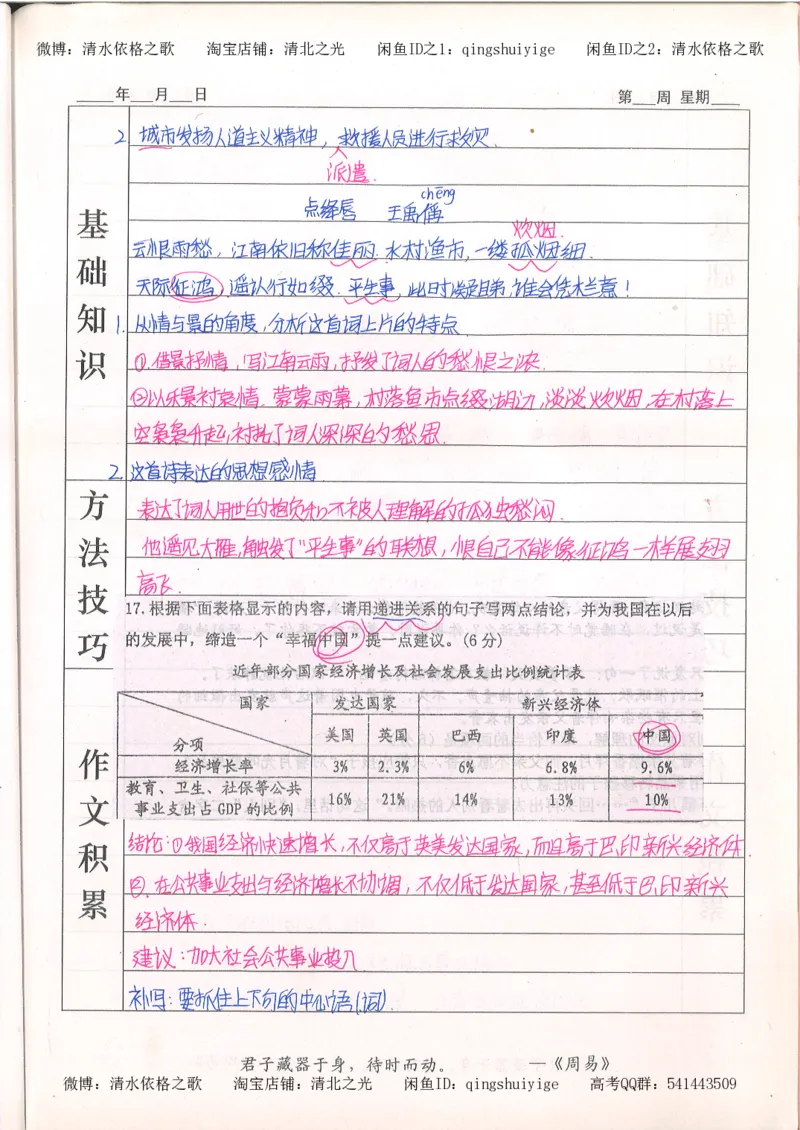 微博：清水依格之歌 淘宝店铺：清北之光 闲鱼ID之1：qingshuiyige 闲鱼ID之2：清水依格之歌
年 月 日 第 周 星期
2. 城市发扬人道主义精神，救援人员进行救灾.
派遣.
chēng
点绛唇 王禹偁
炊烟.
云恨雨愁，江南依旧称佳丽. 水村渔市，一缕孤烟细.
天际征鸿，遥认行如缀. 平生事，此时凝睇，谁会凭栏意！
基础知识
1. 从情与景的角度，分析这首词上片的特点
①.借景抒情，写江南云雨，抒发了词人的愁恨之浓.
②以乐景衬哀情. 蒙蒙雨幕，村落鱼市点缀湖边，淡淡炊烟，在村落上
空袅袅升起，衬托了词人深深的愁思.
2. 这首诗表达的思想感情
方法技巧
表达了词人用世的抱负和不被人理解的孤独愁闷.
他遥见大雁，触发了“平生事”的联想，恨自己不能像征鸿一样展翅
高飞.
17.根据下面表格显示的内容，请用递进关系的句子写两点结论，并为我国在以后
的发展中，缔造一个“幸福中国”提一点建议。(6分)
近年部分国家经济增长及社会发展支出比例统计表
国家 发达国家 新兴经济体
分项 美国 英国 巴西 印度 中国
经济增长率 3% 2.3% 6% 6.8% 9.6%
教育、卫生、社保等公共
事业支出占GDP的比例 16% 21% 14% 13% 10%
作文积累
结论：①我国经济快速增长，不仅高于英美发达国家，而且高于巴、印新兴经济体
②. 在公共事业支出与经济增长不协调，不仅低于发达国家，甚至低于巴、印新兴
经济体.
建议：加大社会公共事业投入
补写：要抓住上下句的中心语(词).
君子藏器于身，待时而动。 —《周易》
微博：清水依格之歌 淘宝店铺：清北之光 闲鱼ID：qingshuiyige 高考QQ群：541443509